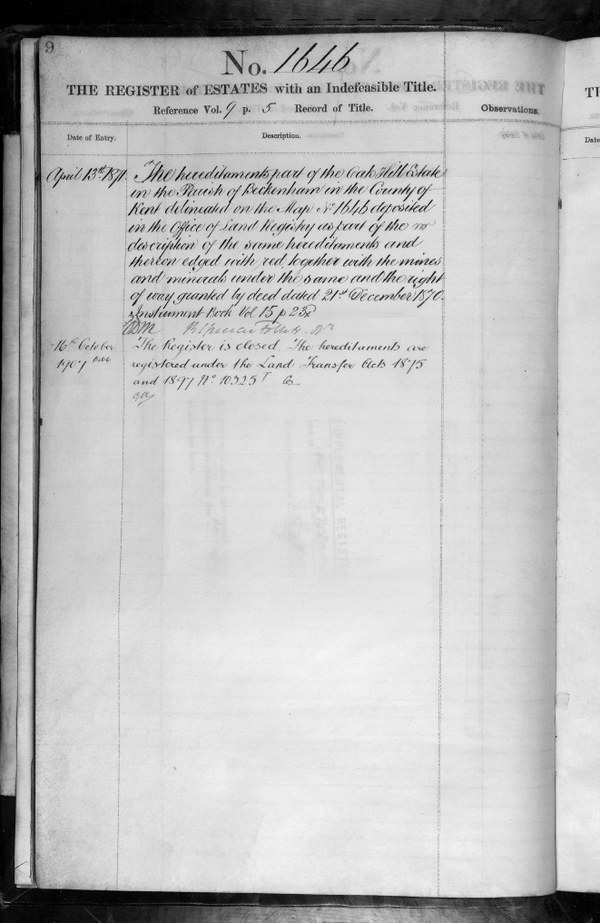 9
No. 1646
THE REGISTER of ESTATES with an Indefeasible Title.
Reference Vol. 9 p. 5 Record of Title.
Observations.
Date of Entry.
Description.
April 13th 1871.
The hereditaments part of the Oak Hill Estate
in the Parish of Beckenham in the County of
Kent delineated on the Map No 1646 deposited
in the Office of Land Registry as part of the
description of the same hereditaments and
thereon edged with red together with the mines
and minerals under the same and the right
of way granted by deed dated 21st December 1870.
Instrument Book Vol 15 p 252
16th October
1907
The Register is closed. The hereditaments are
registered under the Land Transfer Acts 1875
and 1897 No 10525
TH
Date